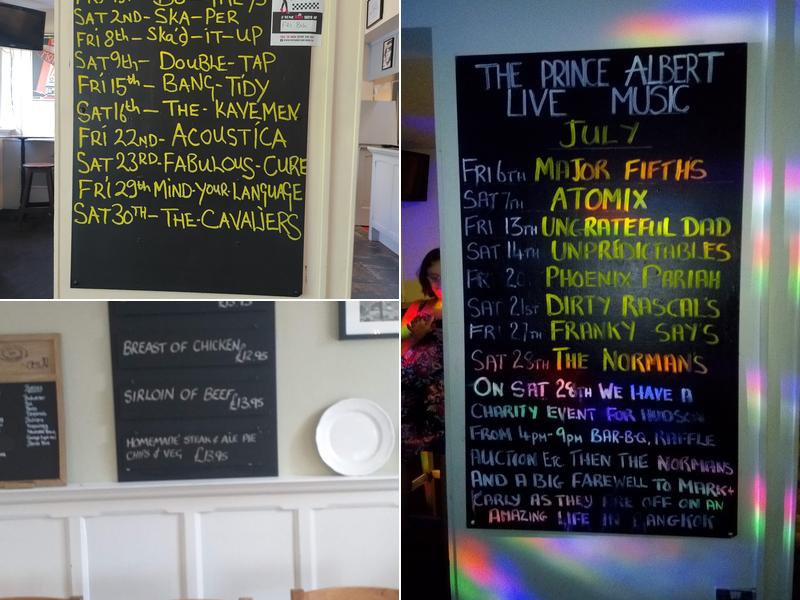 SAT 2ND- SKA-PER
FRI 8th- Ska'd-IT-UP
SAT 9th- DOUBLE-TAP
FRI 15th- BANG-TIDY
SAT 16th- THE-KAVEMEN
FRI 22ND- ACOUSTICA
SAT 23RD-FABULOUS-CURE
FRI 29th MIND-YOUR-LANGUAGE
SAT 30TH-THE-CAVALIERS
BREAST OF CHICKEN
£12.95
SIRLOIN OF BEEF
£13.95
HOMEMADE STEAK & ALE PIE
CHIPS & VEG £13.95
THE PRINCE ALBERT
LIVE MUSIC
JULY
FRI 6TH MAJOR FIFTHS
SAT 7TH ATOMIX
FRI 13TH UNGRATEFUL DAD
SAT 14TH UNPREDICTABLES
FRI 20 PHOENIX PARIAH
SAT 21ST DIRTY RASCAL'S
FRI 27TH FRANKY SAY'S
SAT 28TH THE NORMAN'S
ON SAT 28TH WE HAVE A
CHARITY EVENT FOR HUDSON
FROM 4PM-9PM BAR-B-Q, RAFFLE
AUCTION ETC THEN THE NORMANS
AND A BIG FAREWELL TO MARK+
KARLY AS THEY ARE OFF ON AN
AMAZING LIFE IN BANGKOK